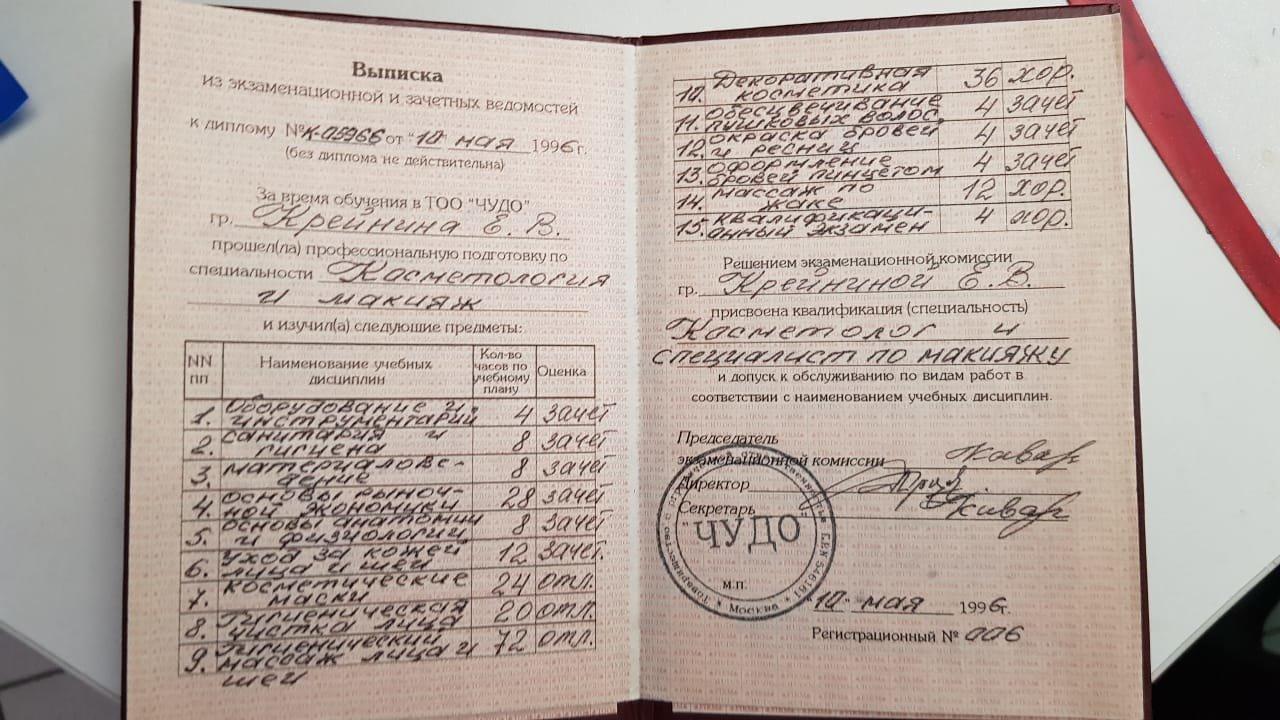 Выписка
из экзаменационной и зачетных ведомостей
к диплому №К-05966 от "10" мая 1996 г.
(без диплома не действительна)
За время обучения в ТОО "ЧУДО"
гр. Крейнина Е. В.
прошел(ла) профессиональную подготовку по
специальности Косметология
и макияж
и изучил(а) следующие предметы:
NN пп Наименование учебных дисциплин Кол-во часов по учебному плану Оценка
1. оборудование и инструментарий 4 зачет
2. санитария и гигиена 8 зачет
3. материалове-дение 8 зачет
4. основы рыноч-ной экономики 28 зачет
5. основы анатомии и физиологии 8 зачет
6. уход за кожей лица и шеи 12 зачет.
7. косметические маски 24 отл.
8. Гигиеническая чистка лица 20 отл.
9. Гигиенический массаж лица и шеи 72 отл.
10. Декоративная косметика 36 хор.
11. обесцвечивание пушковых волос. 4 зачет
12. окраска бровей и ресниц 4 зачет
13. оформление бровей пинцетом 4 зачет
14. массаж по Жаке 12 хор.
15. квалификаци-онный экзамен 4 хор.
Решением экзаменационной комиссии
гр. Крейниной Е. В.
присвоена квалификация (специальность)
Косметолог и
специалист по макияжу
и допуск к обслуживанию по видам работ в
соответствии с наименованием учебных дисциплин.
Председатель
экзаменационной комиссии
Директор
Секретарь
"ЧУДО"
Москва
м.п.
"10" мая 1996г.
Регистрационный № 006